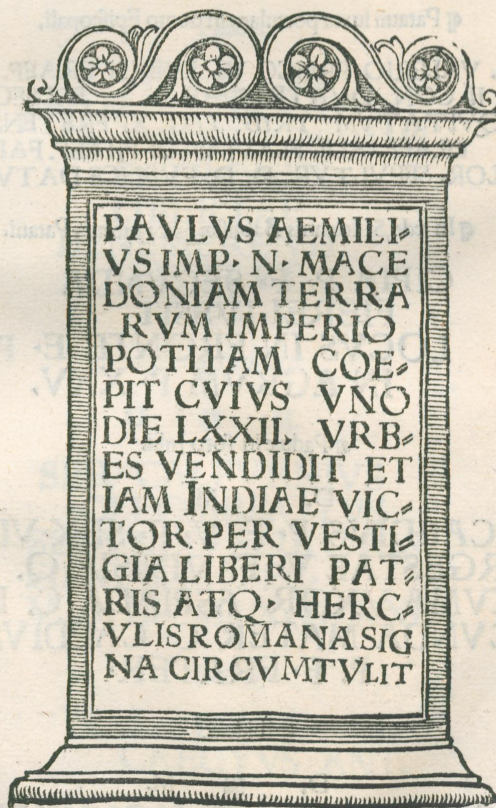 PAVLVS AEMILI⸗
VS IMP· N· MACE
DONIAM TERRA
RVM IMPERIO
POTITAM COE⸗
PIT CVIVS VNO
DIE LXXII, VRB⸗
ES VENDIDIT ET
IAM INDIAE VIC⸗
TOR PER VESTI⸗
GIA LIBERI PAT⸗
RIS ATQ· HERC⸗
VLIS ROMANA SIG
NA CIRCVMTVLIT